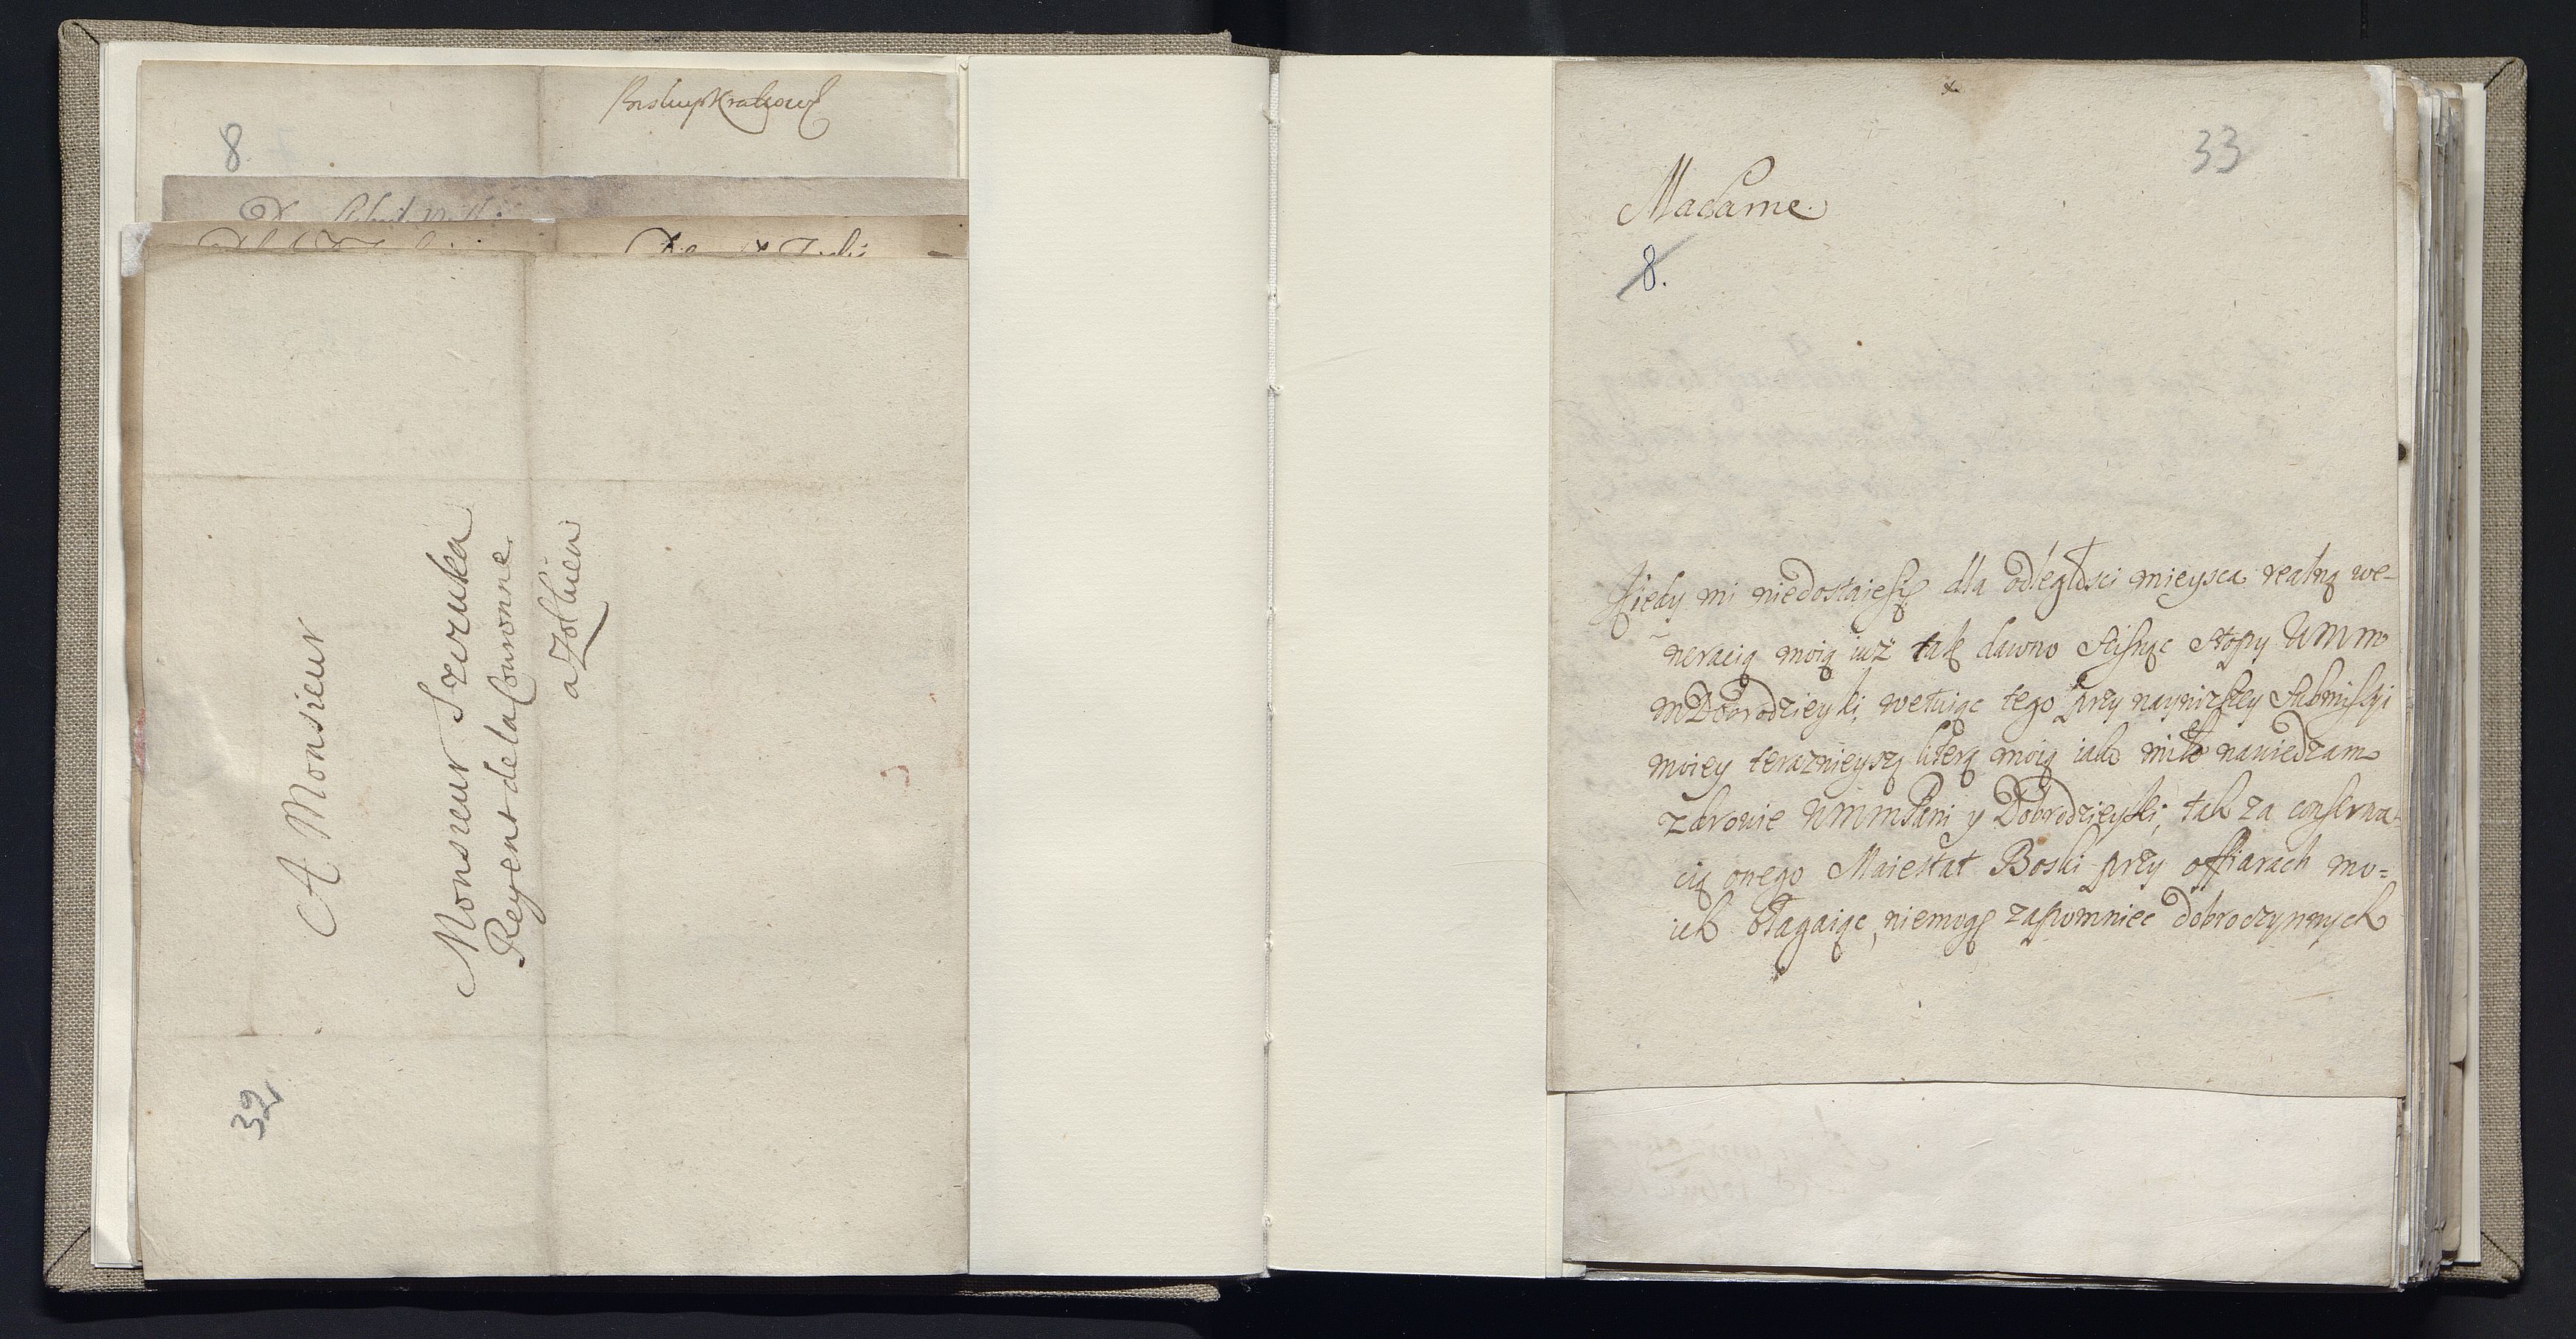 Biskup Krakows
8
A Monsieur
Monsieur Szczuka
Regent de la Couronne
a Zolkiew
32
33
Madame
8.
Kiedy mi niedostaie się dla odległosci mieysca realną we-
neracią moią iuż tak dawno scisnąc stopy WMM
MDobrodzieyki, wetuiąc tego przy nayniższey submissyi
moiey teraznieyszą literą moią iako miło nawiedzam
zdrowie WMMPani y Dobrodzieyki, tak za conserwa-
cią onego Maiestat Boski przy offiarach mo=
ich błagaiąc, niemogę zapomniec dobroczynnych